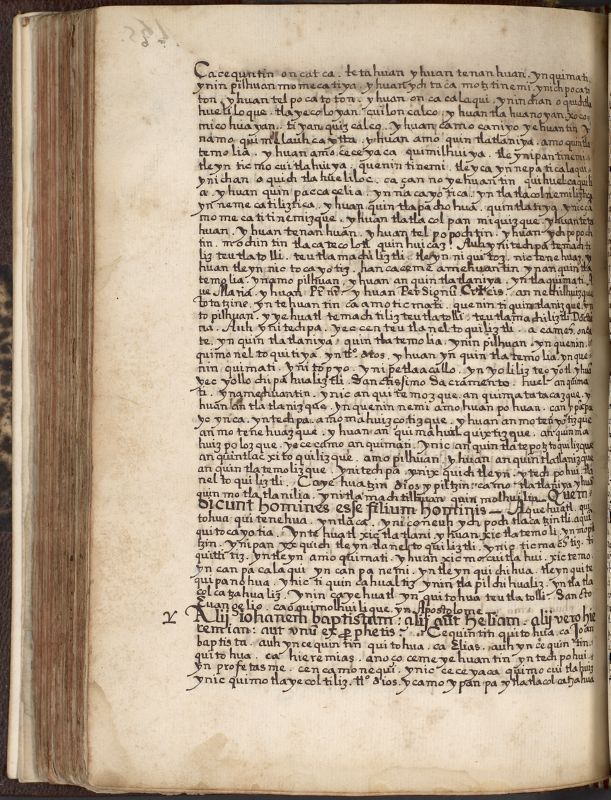 Ca cequntin oncatca. te tahuan yhuan tenanhuan. yn quimati
ynin pilhuan momecatiya. yhuan ychtaca motztinemi ynichpocato
ton. yhuan telpocatoton. yhuan oncacalaqui. ynin chan oquichtla
huelilo que. tlayecoloyan cuiloncalco. yhuan tlahuanoyan. xoco
micohuayan. tiyanquizcalco. yhuan camo caniyo yehuantin y
namo quimellauhcaytta. yhuan amo quintlatlaniya. amo quintla
temolia. yhuan amo ceceyaca quimilhuiya. tle ynipan tinemi
tleyn ticmocuitlahuiya. quenin tinemi. tleyca ynepa ticalaqui
yn ichan oquichtlahueliloc. ca çan noyehuantin quihuelcaqui
ce. yhuan quinpaccacelia. yn nacayotica. yn tlatlacolnemiliztica
yn nemecatiliztica. yhuan quintlapachohua. quintlatiya. ynicca
momecatitinemizque. yhuan tlatlacolpan miquizque. yhuan teta
huan. yhuan tenanhuan. yhuan telpopochtin. yhuan ychpopoch
tin. mochintin tlacatecolotl quinhuicaz. Auh ynitechpa temachti
liz teutlatolli. teutlamachiliztli. tleyn niquitoz. nictenehuaz. y
huan tleyn nictocayotiz. han caceme amehuantin ynanquintla
temolia. ynamopilhuan. yhuan anquintlatlaniya. yn tlaquimati. A
ve Maria. yhuan Pr̃ nr̃. yhuan Persignũ Crucis. annechilhuizque
totatzine. yn tehuantin ca amo ticmati. quenin tiquintlanizque. yn
topilhuan. yyehuatl temachtiliz teutlatolli. teutlamachiliztli Doctri
na. Auh ynitechpa. yeccen teutlaneltoquiliztli. aceamesone
te. yn quintlatlaniya. quintlatemolia. ynin pilhuan. ynquenin.
quimoneltoquitiya. yn tt.º dios. yhuan yn quintlatemolia. yn que
nin quimati. ynitopyo. ynipetlacallo. yn yoliliz teoyotl yhua
yecyollochipahualiztli. Sanctissimo Sacramento. huel anquima
ti. ynamehuantin. ynic anquitemozque. anquimatatacazque. y
huan antlatlanizque. yn quenin nemi amohuanpohuan. can ypãpa
yc ynca. yntechpa. amo mahuizcotizque. yhuan anmoteyotizque
anmotenehuazque. yhuan anquimahuilquixtizque. anquinma
huizpolozque. yece camo anquimati. ynic anquintlatepotztoquilizque
anquintlacxitoquilizque. amopilhuan. yhuan anquintlatlanizque
anquintlatemolizque. ynitechpa ynixquich tleyn. ytechpohui tla
neltoquiliztli. Ca yehuatzin dios ypiltzin. camo tlatlaniya yhuan
quinmotlatlanilia. ynitlamachtilhuan quinmolhuilia. Quem
dicunt homines esse filium hominis
tohua quitenehua. yntlaca. yni coneuh ychpochtlacatzintli. aqui
quitocayotia. Yn tehuatl xictlatlani yhuan xictlatemoli. ynmopil
tzin. ynipan yxquich tleyn tlaneltoquiliztli. ynipticmatiztz. ti
quittztiz. yn tleyn amo quimati. yhuan xicmocuitlahui. xictemo.
yn canpa calaqui yn canpa nemi. yn tleyn quichihua. tleyn quite
quipanohua. yhic tiquincahualtiz ynin tlapilchihualiz. yn tlatla
colcatzahualiz. ynin ca yehuatl yn quitohua teutlatolli. Sancto
Euangelio. caoquimolhuilique. yn Apostolome
Alij Iohanem baptistam: alij aut Heliam. alij vero hie
remiam: aut vnũ ex prophetis. Cequintin quitohua. ca Ioan
baptista. auh yn cequintin quitohua. ca Elias. auh yn cequintin.
quitohua. ca hieremias. anoço ceme yehuantin yntechpohui.
yn profetasme. cencamonequi. ynic ceceyaca quimocuitlahuiz
ynic quimotlayecoltiliz. tt.º dios. ycamo ypanpa ytlatlacolcatzahua